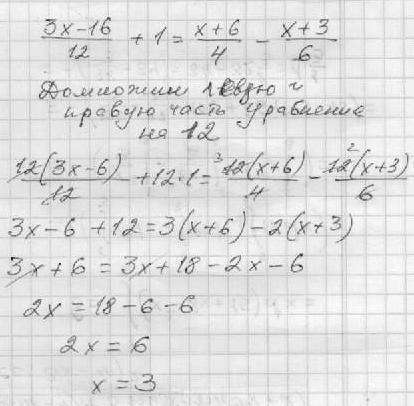 (3x-16)/12 + 1 = (x+6)/4 - (x+3)/6
Домножим левую и
правую часть уравнение
на 12
12(3x-6)/12 + 12·1 = ³12(x+6)/4 - ²12(x+3)/6
3x-6 +12 = 3(x+6) - 2(x+3)
3x + 6 = 3x + 18 - 2x - 6
2x = 18 - 6 - 6
2x = 6
x = 3